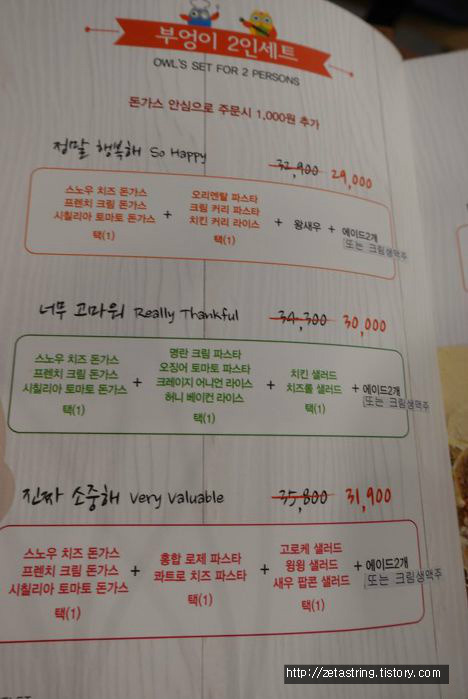 부엉이 2인세트
OWL'S SET FOR 2 PERSONS
돈가스 안심으로 주문시 1,000원 추가
정말 행복해 So Happy 32,900 29,000
스노우 치즈 돈가스
프렌치 크림 돈가스
시칠리아 토마토 돈가스
택(1)
+
오리엔탈 파스타
크림 커리 파스타
치킨 커리 라이스
택(1)
+ 왕새우 + 에이드2개
[또는 크림생맥주
너무 고마워 Really Thankful 34,300 30,000
스노우 치즈 돈가스
프렌치 크림 돈가스
시칠리아 토마토 돈가스
택(1)
+
명란 크림 파스타
오징어 먹물 파스타
크레이지 어니언 라이스
허니 베이컨 라이스
택(1)
+
치킨 샐러드
치즈롤 샐러드
택(1)
+ 에이드2개
[또는 크림생맥주
진짜 소중해 Very Valuable 35,800 31,900
스노우 치즈 돈가스
프렌치 크림 돈가스
시칠리아 토마토 돈가스
택(1)
+
홍합 로제 파스타
콰트로 치즈 파스타
택(1)
+
고로케 샐러드
윙윙 샐러드
새우 팝콘 샐러드
택(1)
+ 에이드2개
[또는 크림생맥주
http://zetastring.tistory.com